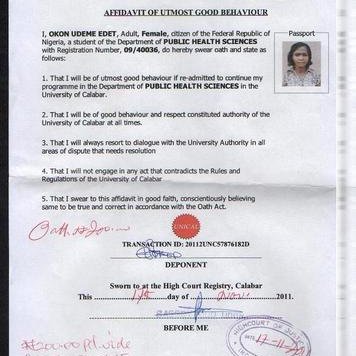 AFFIDAVIT OF UTMOST GOOD BEHAVIOUR
I, OKON UDEME EDET, Adult, Female, citizen of the Federal Republic of
Nigeria, a student of the Department of PUBLIC HEALTH SCIENCES
with Registration Number, 09/40036, do hereby swear oath and state as
follows:
Passport
1. That I will be of utmost good behaviour if re-admitted to continue my
programme in the Department of PUBLIC HEALTH SCIENCES in the
University of Calabar.
2. That I will be of good behaviour and respect constituted authority of the
University of Calabar at all times.
3. That I will always resort to dialogue with the University Authority in all
areas of dispute that needs resolution
4. That I will not engage in any act that contradicts the Rules and
Regulations of the University of Calabar
5. That I swear to this affidavit in good faith, conscientiously believing
same to be true and correct in accordance with the Oath Act.
UNICAL
TRANSACTION ID: 20112UNC57876182D
DEPONENT
Sworn to at the High Court Registry, Calabar
This 17th day of Nov. 2011.
BEFORE ME
HIGH COURT OF JUSTICE
DATE 17-11-